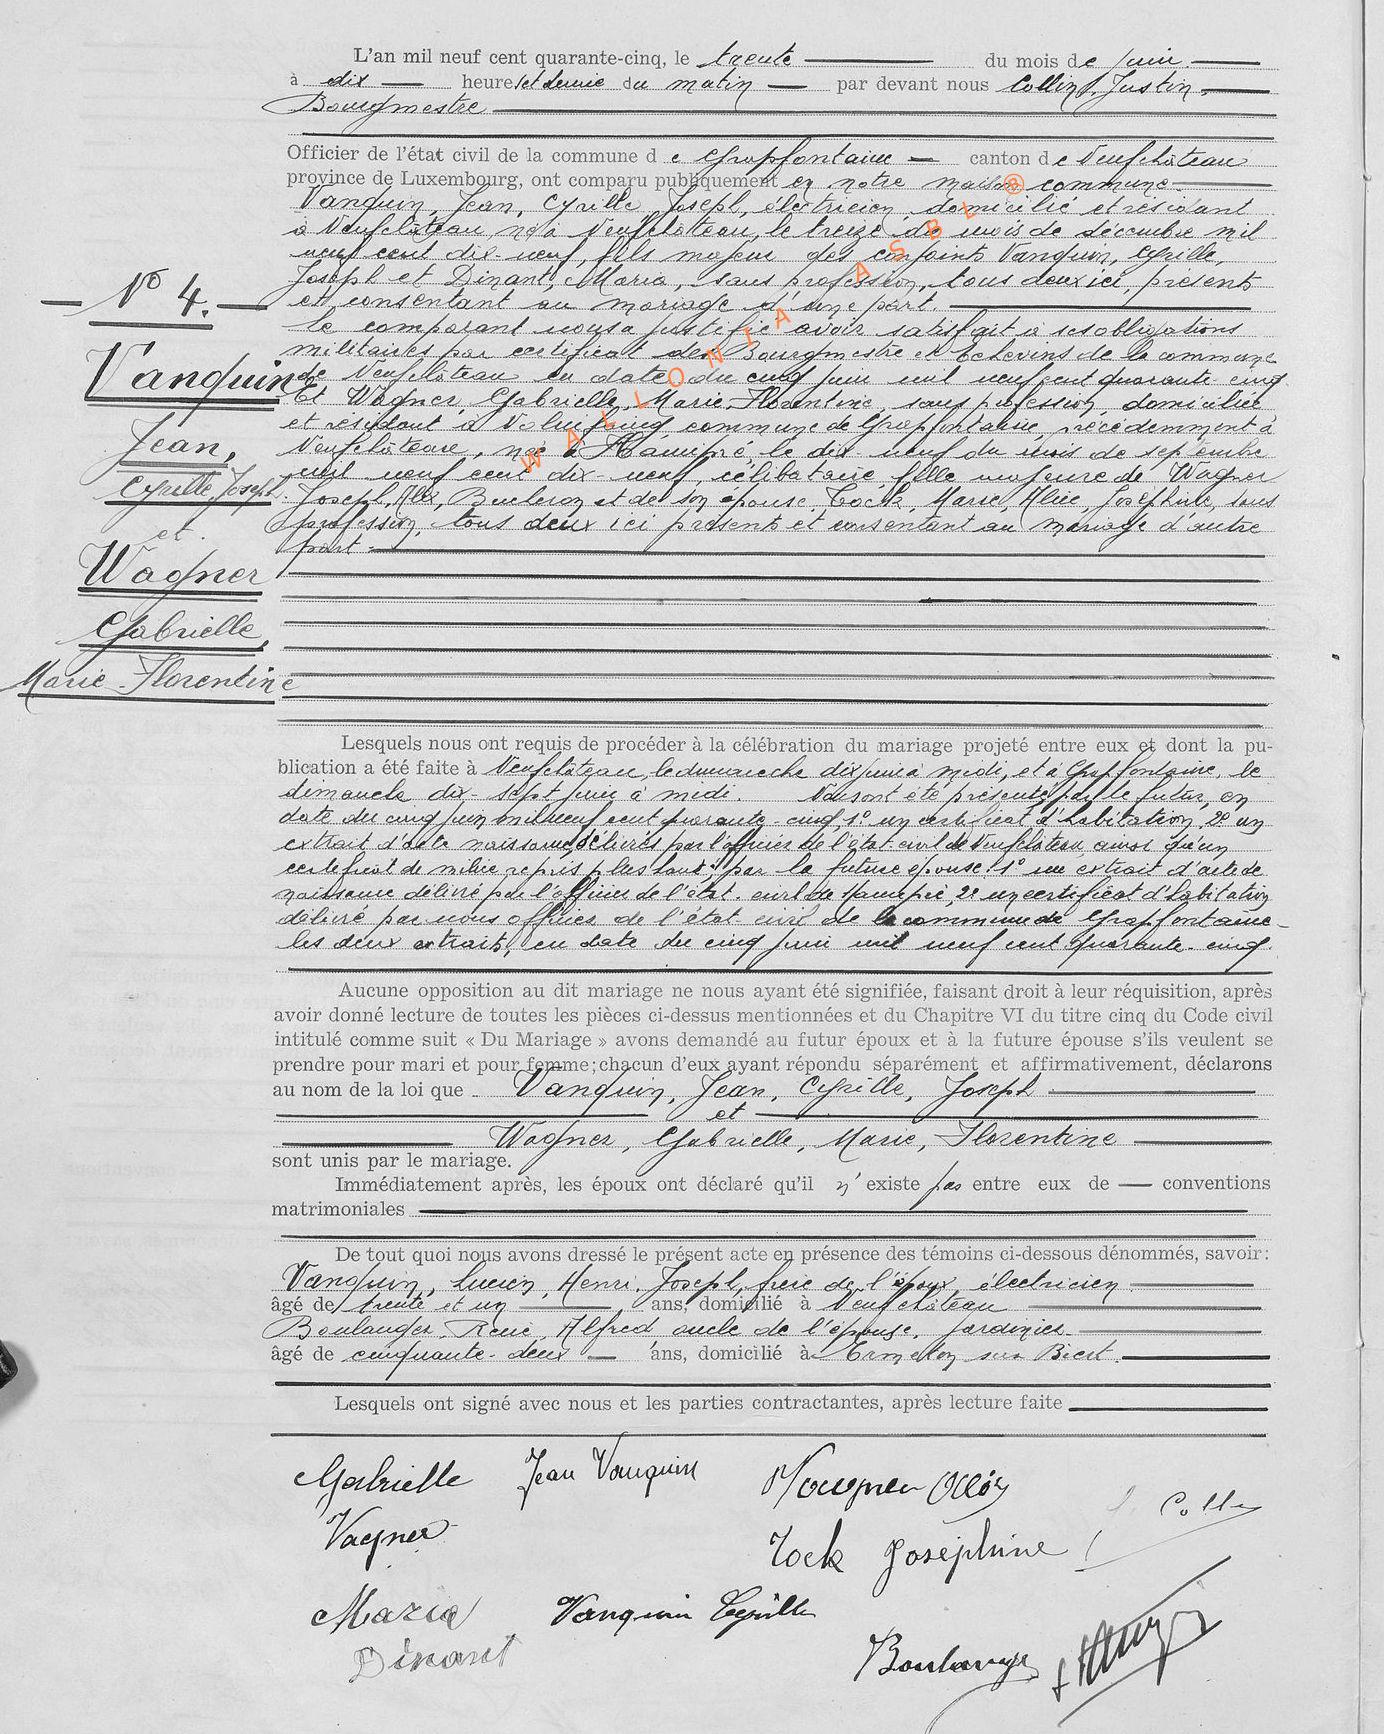 L'an mil neuf cent quarante-cinq, le trente du mois de juin
à dix heures et demie du matin par devant nous Collin, Justin,
Bourgmestre
Officier de l'état civil de la commune de Grapfontaine canton de Neufchâteau
province de Luxembourg, ont comparu publiquement en notre maison commune
Vanquin, Jean, Cyrille, Joseph, électricien, domicilié et résidant
à Neufchâteau, né à Neufchâteau, le treize du mois de décembre mil
neuf cent dix-neuf, fils majeur des conjoints Vanquin, Cyrille,
Joseph et Dinant, Maria, sans profession, tous deux ici présents
et consentant au mariage d'une part.
le comparant nous a justifié avoir satisfait à ses obligations
militaires par certificat des Bourgmestre et Echevins de la commune
de Neufchâteau en date du cinq juin mil neuf cent quarante cinq
Et Wagner, Gabrielle, Marie, Florentine, sans profession, domiciliée
et résidant à commune de Grapfontaine, précédemment à
Neufchâteau, née à Hamipré, le dix-neuf du mois de septembre
mil neuf cent dix-neuf, célibataire, fille majeure de Wagner
Joseph, Bucheron et de son épouse, Tock, Marie, Josephine, sans
profession, tous deux ici présents et consentant au mariage d'autre
part.
N° 4.
Vanquin
Jean,
Cyrille, Joseph.
et
Wagner
Gabrielle,
Marie-Florentine
WALLONIA ASBL ®
Lesquels nous ont requis de procéder à la célébration du mariage projeté entre eux et dont la pu-
blication a été faite à Neufchâteau, le dimanche dix juin à midi, et à Grapfontaine, le
dimanche dix-sept juin à midi. Nous ont été présentés par le futur, en
date du cinq juin mil neuf cent quarante-cinq, 1° un certificat d'habitation, 2° un
extrait d'acte naissance, délivrés par l'officier de l'état civil de Neufchâteau, ainsi qu'un
certificat de milice repris plus haut; par la future épouse: 1° un extrait d'acte de
naissance délivré par l'officier de l'état civil de Hamipré, 2° un certificat d'habitation
délivré par nous officier de l'état civil de la commune de Grapfontaine
les deux extraits, en date du cinq juin mil neuf cent quarante-cinq.
Aucune opposition au dit mariage ne nous ayant été signifiée, faisant droit à leur réquisition, après
avoir donné lecture de toutes les pièces ci-dessus mentionnées et du Chapitre VI du titre cinq du Code civil
intitulé comme suit « Du Mariage » avons demandé au futur époux et à la future épouse s'ils veulent se
prendre pour mari et pour femme; chacun d'eux ayant répondu séparément et affirmativement, déclarons
au nom de la loi que Vanquin, Jean, Cyrille, Joseph
et
Wagner, Gabrielle, Marie, Florentine
sont unis par le mariage.
Immédiatement après, les époux ont déclaré qu'il n'existe pas entre eux de conventions
matrimoniales
De tout quoi nous avons dressé le présent acte en présence des témoins ci-dessous dénommés, savoir:
Vanquin, Lucien, Henri, Joseph, frère de l'époux, électricien
âgé de trente et un ans, domicilié à Neufchâteau
Boulanger, René, Alfred oncle de l'épouse, jardinier
âgé de cinquante-deux ans, domicilié à Ermeton sur Biert.
Lesquels ont signé avec nous et les parties contractantes, après lecture faite
Gabrielle Jean Vanquin
Vagner Collin
Tock Joséphine
Maria Vanquin Cyrille
Dinant
Boulanger